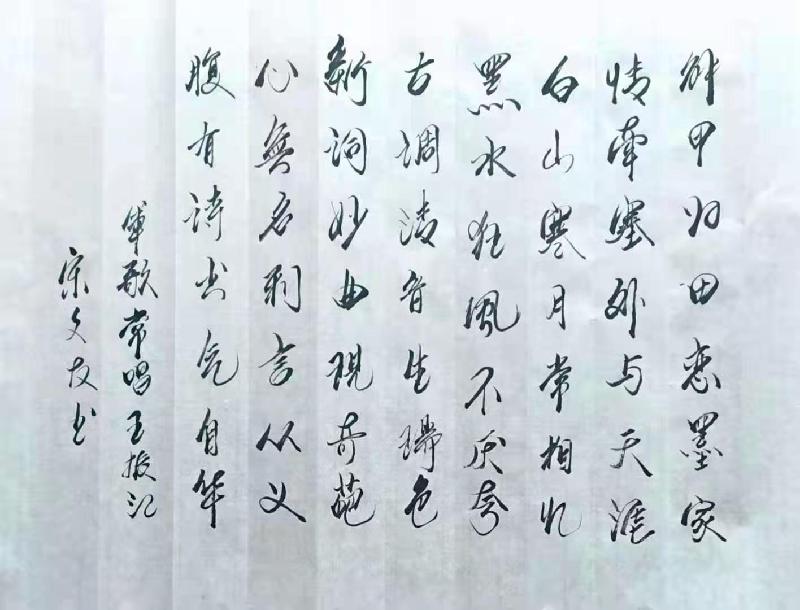 解甲归田恋墨家
情牵塞外与天涯
白山寒月常相忆
黑水狂风不厌夸
古调清音生瑞色
新词妙曲现奇葩
心無名利言从义
腹有诗书气自华
军歌常唱王振江
宋文友书